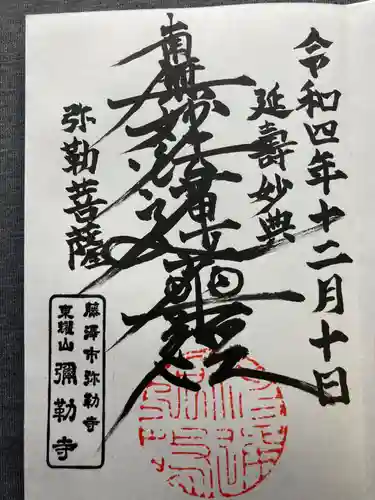 令和四年十二月十日
延壽妙典
南無妙法蓮華経
弥勒菩薩
藤澤市弥勒寺
東耀山
彌勒寺